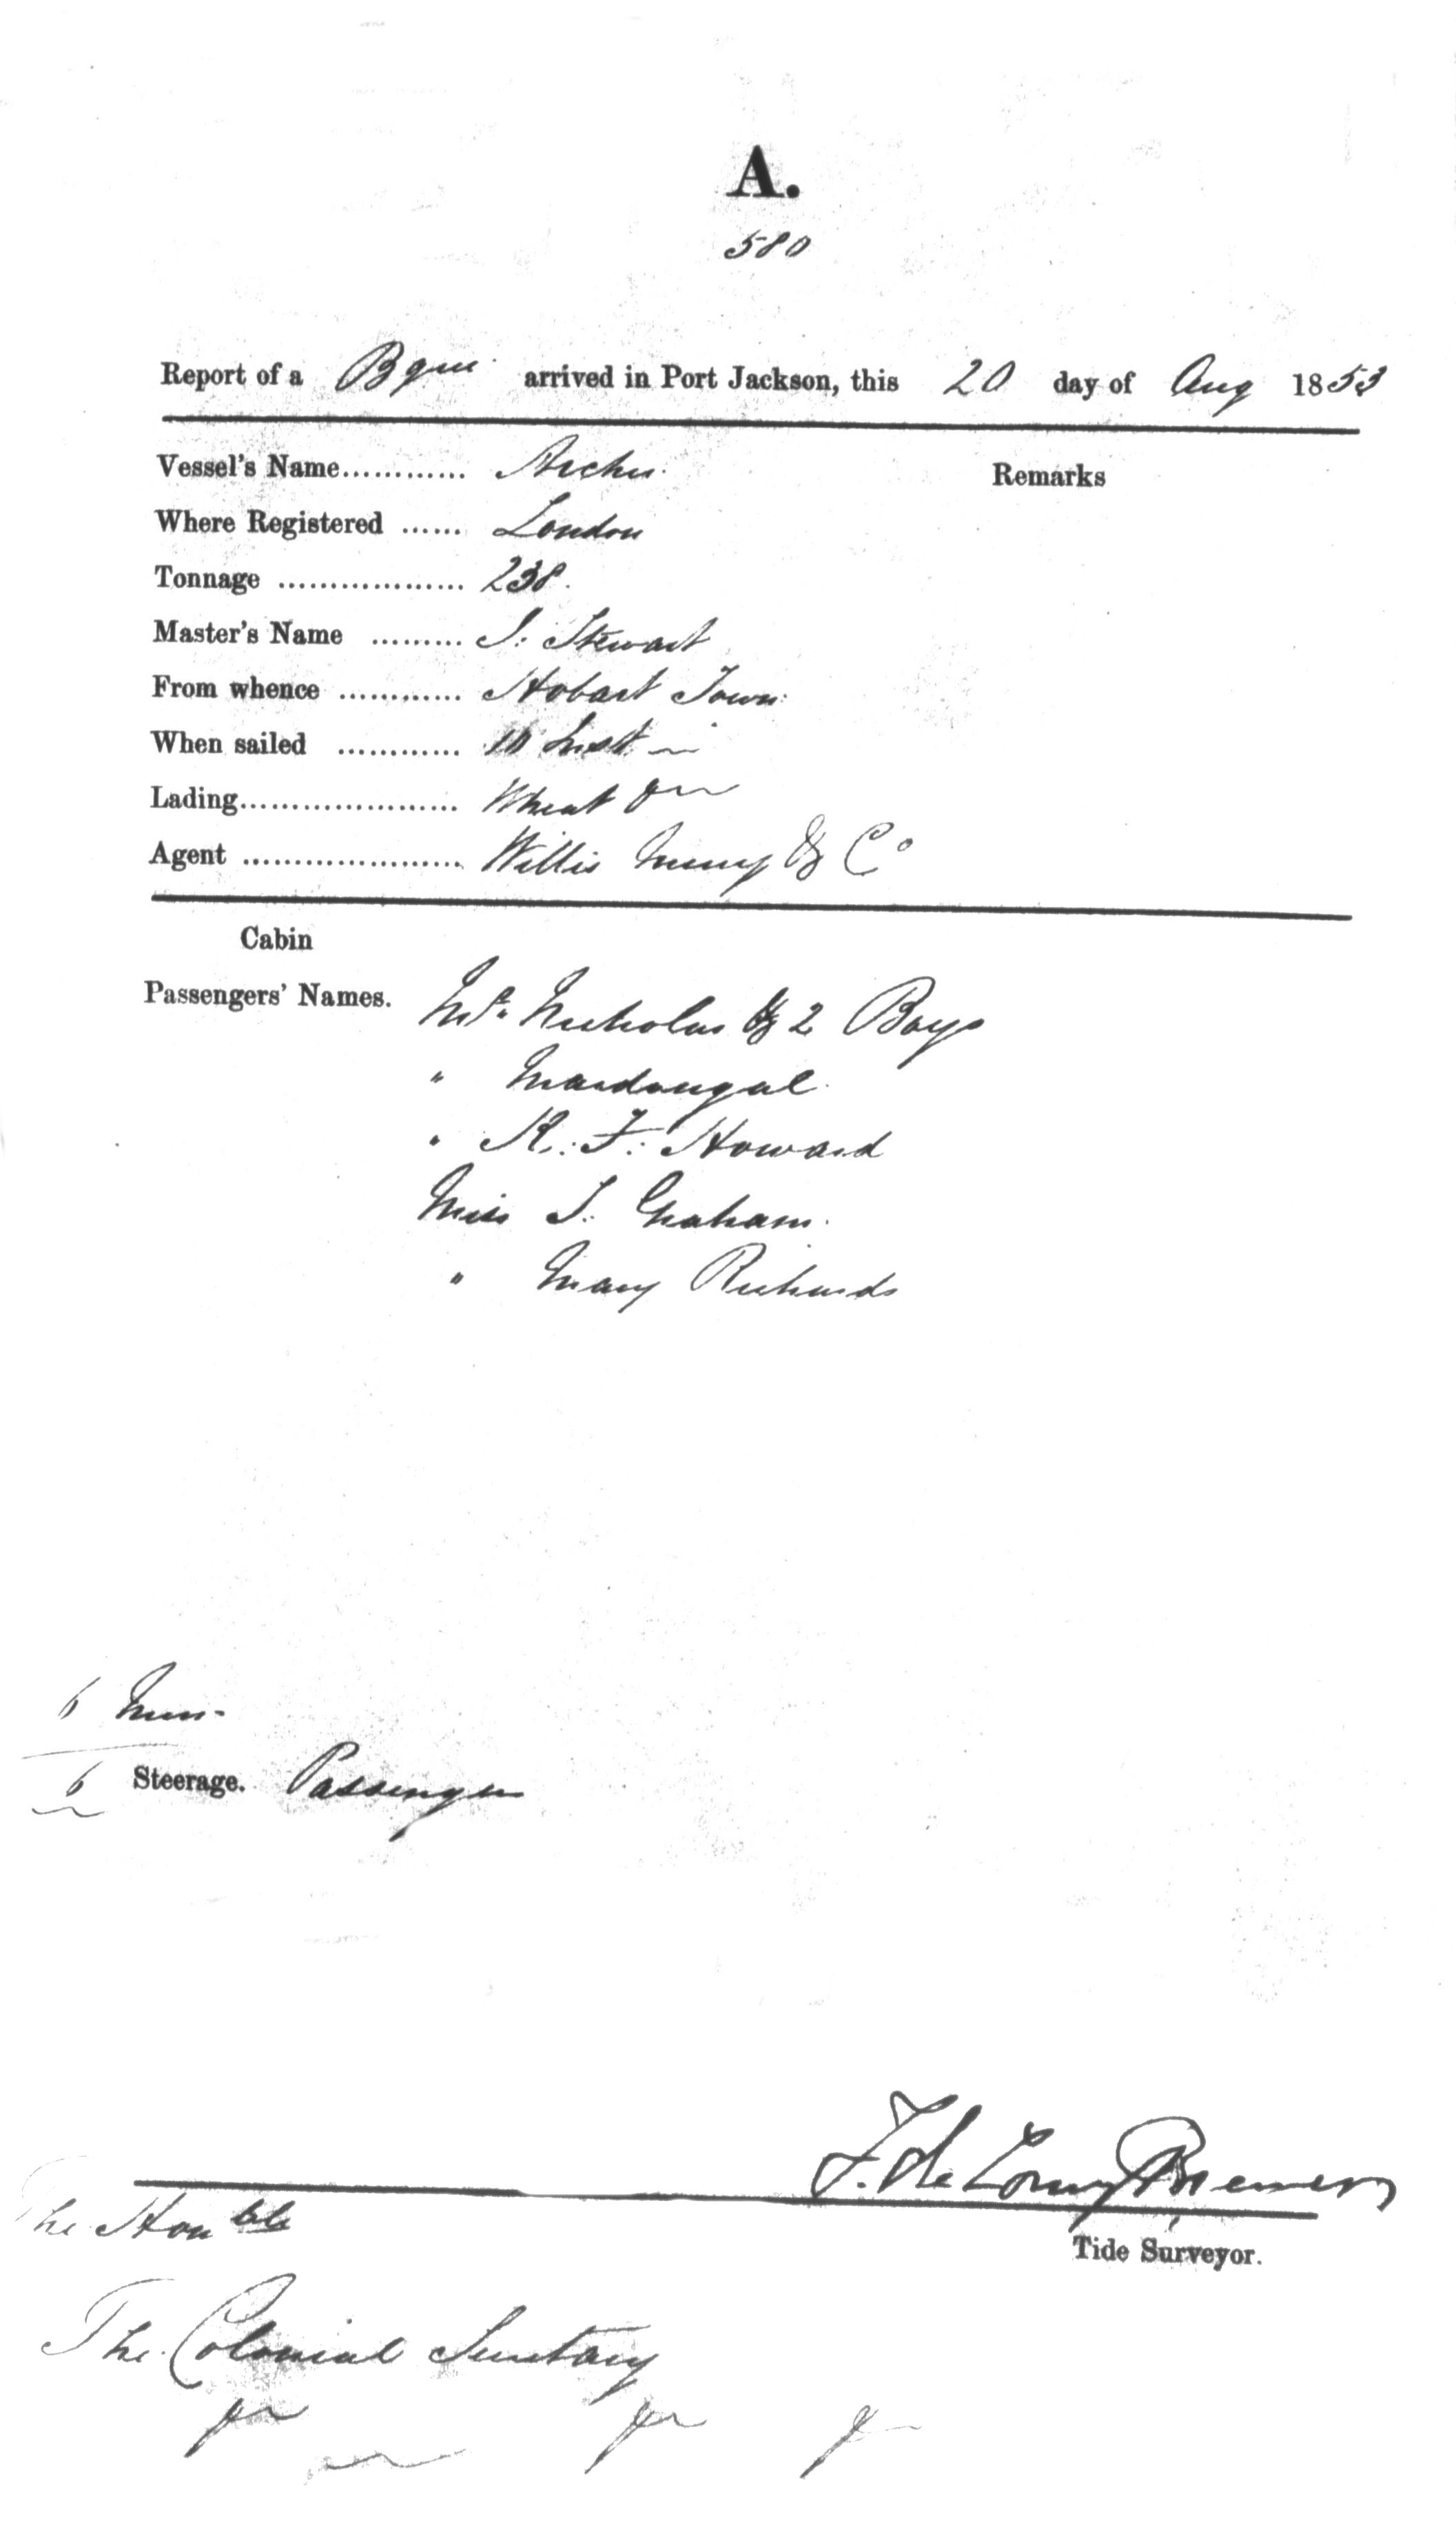 A.
580
Report of a Bque arrived in Port Jackson, this 20 day of Aug 1853
Vessel's Name............ Archer
Remarks
Where Registered ...... London
Tonnage .................. 238.
Master's Name ......... J. Stewart
From whence ............ Hobart Town
When sailed ............ 10 Inst
Lading..................... Wheat &c
Agent ...................... Willis Merry & Co
Cabin
Passengers' Names. Mr. Nicholas & 2 Boys
" Macdougal
" R. F. Howard
Miss J. Graham
" Mary Richards
6 Men
6 Steerage. Passengers
F. de Bremer
Tide Surveyor.
The Honble
The Colonial Secretary
&c &c &c